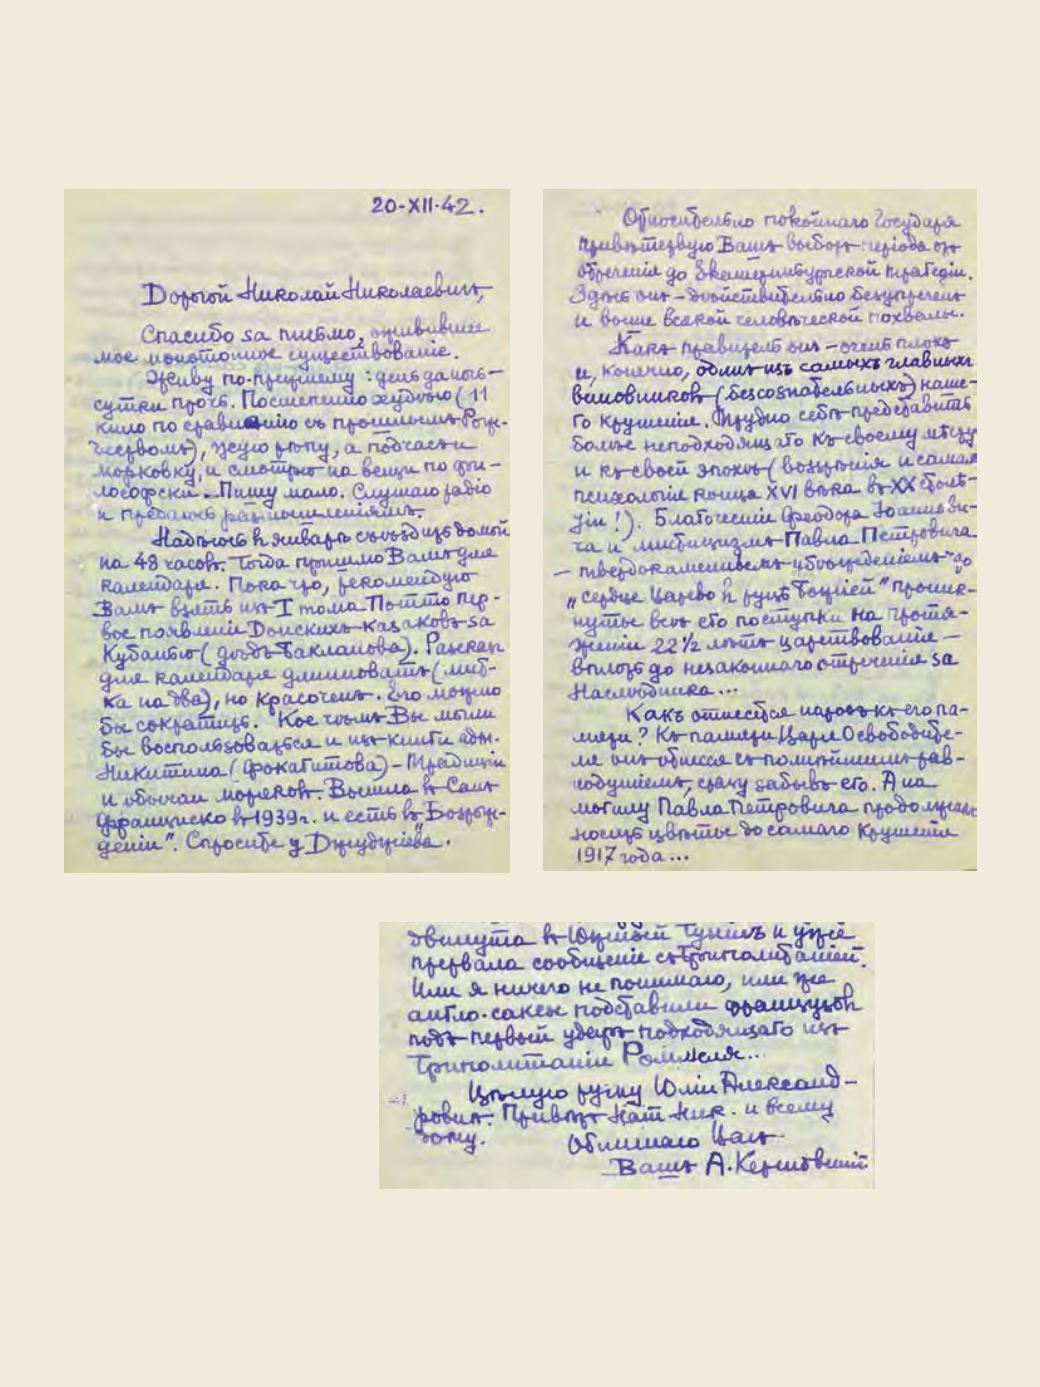 20-XII-42.
Дорогой Николай Николаевичъ,
Спасибо за письмо, оживившее
мое монотонное существованіе.
Живу по-прежнему: день да ночь —
сутки прочь. Постепенно худѣю (11
кило по сравненію съ прошлымъ Рож-
дествомъ), жую рѣпу, а подчасъ и
морковку, и смотрю на вещи по фи-
лософски. Пишу мало. Слушаю радіо
и предаюсь размышленіямъ.
Надѣюсь въ январѣ съѣздить домой
на 48 часовъ. Тогда пришлю Вамъ для
календаря. Пока что, рекомендую
Вамъ взять изъ I тома Потто пер-
вое появленіе Донскихъ казаковъ за
Кубанью (дѣдъ Бакланова). Разсказъ
для календаря длинноватъ (лист-
ка на два), но красоченъ. Его можно
бы сократить. Кое чѣмъ Вы могли
бы воспользоваться и изъ книги адм.
Никитина (Фокагитова) — Традиціи
и обычаи моряковъ. Вышла въ Санъ
Франциско въ 1939 г. и есть въ „Возрож-
деніи“. Спросите у
Относительно покойнаго Государя
привѣтствую Вашъ выборъ: періода отъ
отреченія до Екатеринбургской трагедіи.
Здѣсь онъ — дѣйствительно безупреченъ
и выше всякой человѣческой похвалы.
Какъ правитель онъ — очень плохъ
и, конечно, одинъ изъ самыхъ главныхъ
виновниковъ (безсознательныхъ) наше-
го крушенія. Трудно себѣ представить
болѣе неподходящаго къ своему мѣсту
и къ своей эпохѣ (воззрѣнія и самая
психологія конца XVI вѣка въ XX столѣ-
тіи!). Благочестіе Феодора Іоаннови-
ча и мистицизмъ Павла Петровича
— твердокаменнымъ убѣжденіемъ что
„сердце Царево въ руцѣ Божіей“ проник-
нутые всѣ его поступки на протя-
женіи 22½ лѣтъ царствованія —
вплоть до незаконнаго отреченія за
Наслѣдника...
Какъ отнесется народъ къ его па-
мяти? Къ памяти Царя Освободите-
ля онъ отнесся съ полнѣйшимъ рав-
нодушіемъ, сразу забывъ его. А на
могилу Павла Петровича продолжали
носить цвѣты до самаго Крушенія
1917 года...
двинута въ Южный Тунисъ и уже
прервала сообщеніе съ Триполитаніей.
Или я ничего не понимаю, или же
англо-саксы подставили французовъ
подъ первый ударъ подходящаго изъ
Триполитаніи Роммеля...
Цѣлую ручку Юліи Александ-
ровнѣ. Привѣтъ Нат. Ник. и всему
дому. Обнимаю Васъ.
Вашъ А. Керсновскій